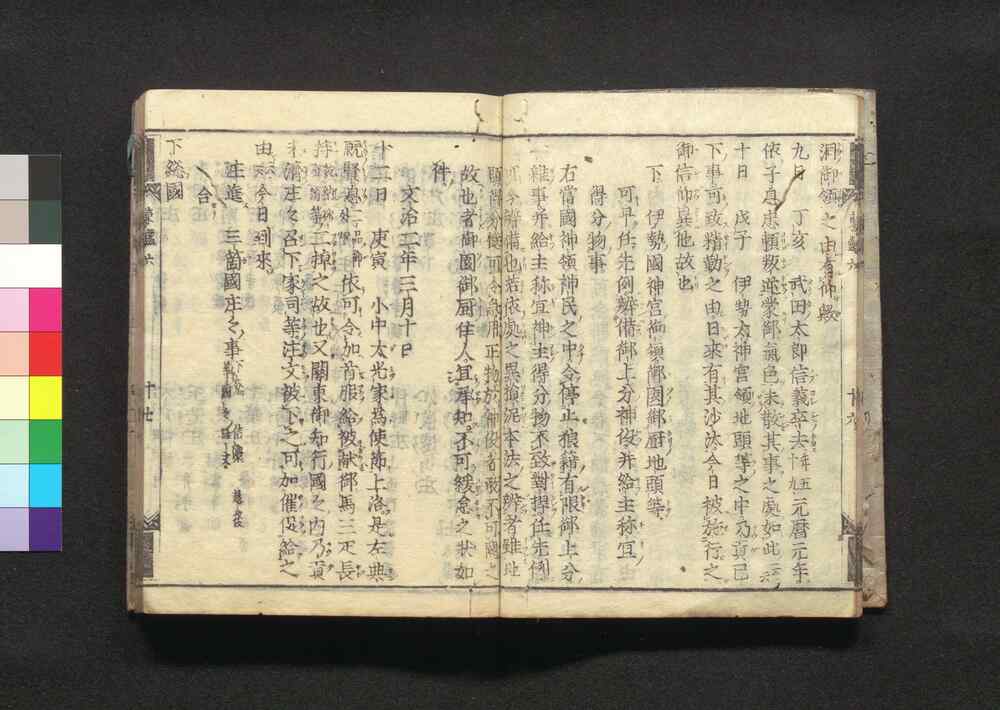 洞御領之由有御
九日 丁亥 武田太郎信義卒去 元暦元年
依子息忠頼叛逆蒙御氣色未散其事之處如此云云
十日 戊子 伊勢太神宮領地頭等之中乃貢已
下事可致精勤之由日来有其沙汰今日被施行之
御信仰異他故也
下 伊勢國神宮御領御園御厨地頭等
可早任先例辨備御上分神役并給主祢宜
得分物事
右當國神領神民之中令停止狼籍有限御上分
雜事并給主祢宜神主得分物不致對捍任先例
可令辨備也若依處之異損泥本法之辨者雖
得分便可令
正物於神役者敢不可闕之
故也者御園御厨住人宜承知不可緩怠之状如
件
文治二年三月十日
十二日 庚寅 小中太光家為使節上洛是左典
厩賢息二品御 依可令加首服給被献御馬三疋長
持
等之故也又關東御知行國之内乃貢
済庄々召下家司等注文被下之可加催促給之
由云云今日到来
注進 三箇國庄々事 下総 信濃 越後 等國々
合
下総國
東鑑六
十六
十七